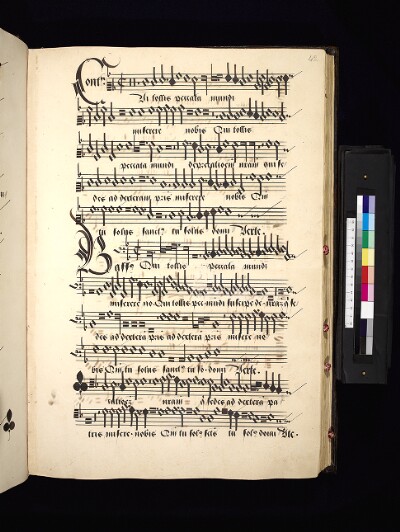 Cont
Qui tollis peccata mundi
miserere nobis Qui tollis
peccata mundi deprecationem nram qui se
des ad dexteram pris miserere nobis Qm
tu solus sanct tu solus domi
Bass Qui tollis peccata mundi
miserere no Qui tollis pec mundi suscipe de
des ad dextera pris ad dextera pris misere no
bis Qm tu solus sanct tu so domi
nram ꝗ sedes ad dextera pa
tris misere nobis Qm tu sol scts tu sol domi